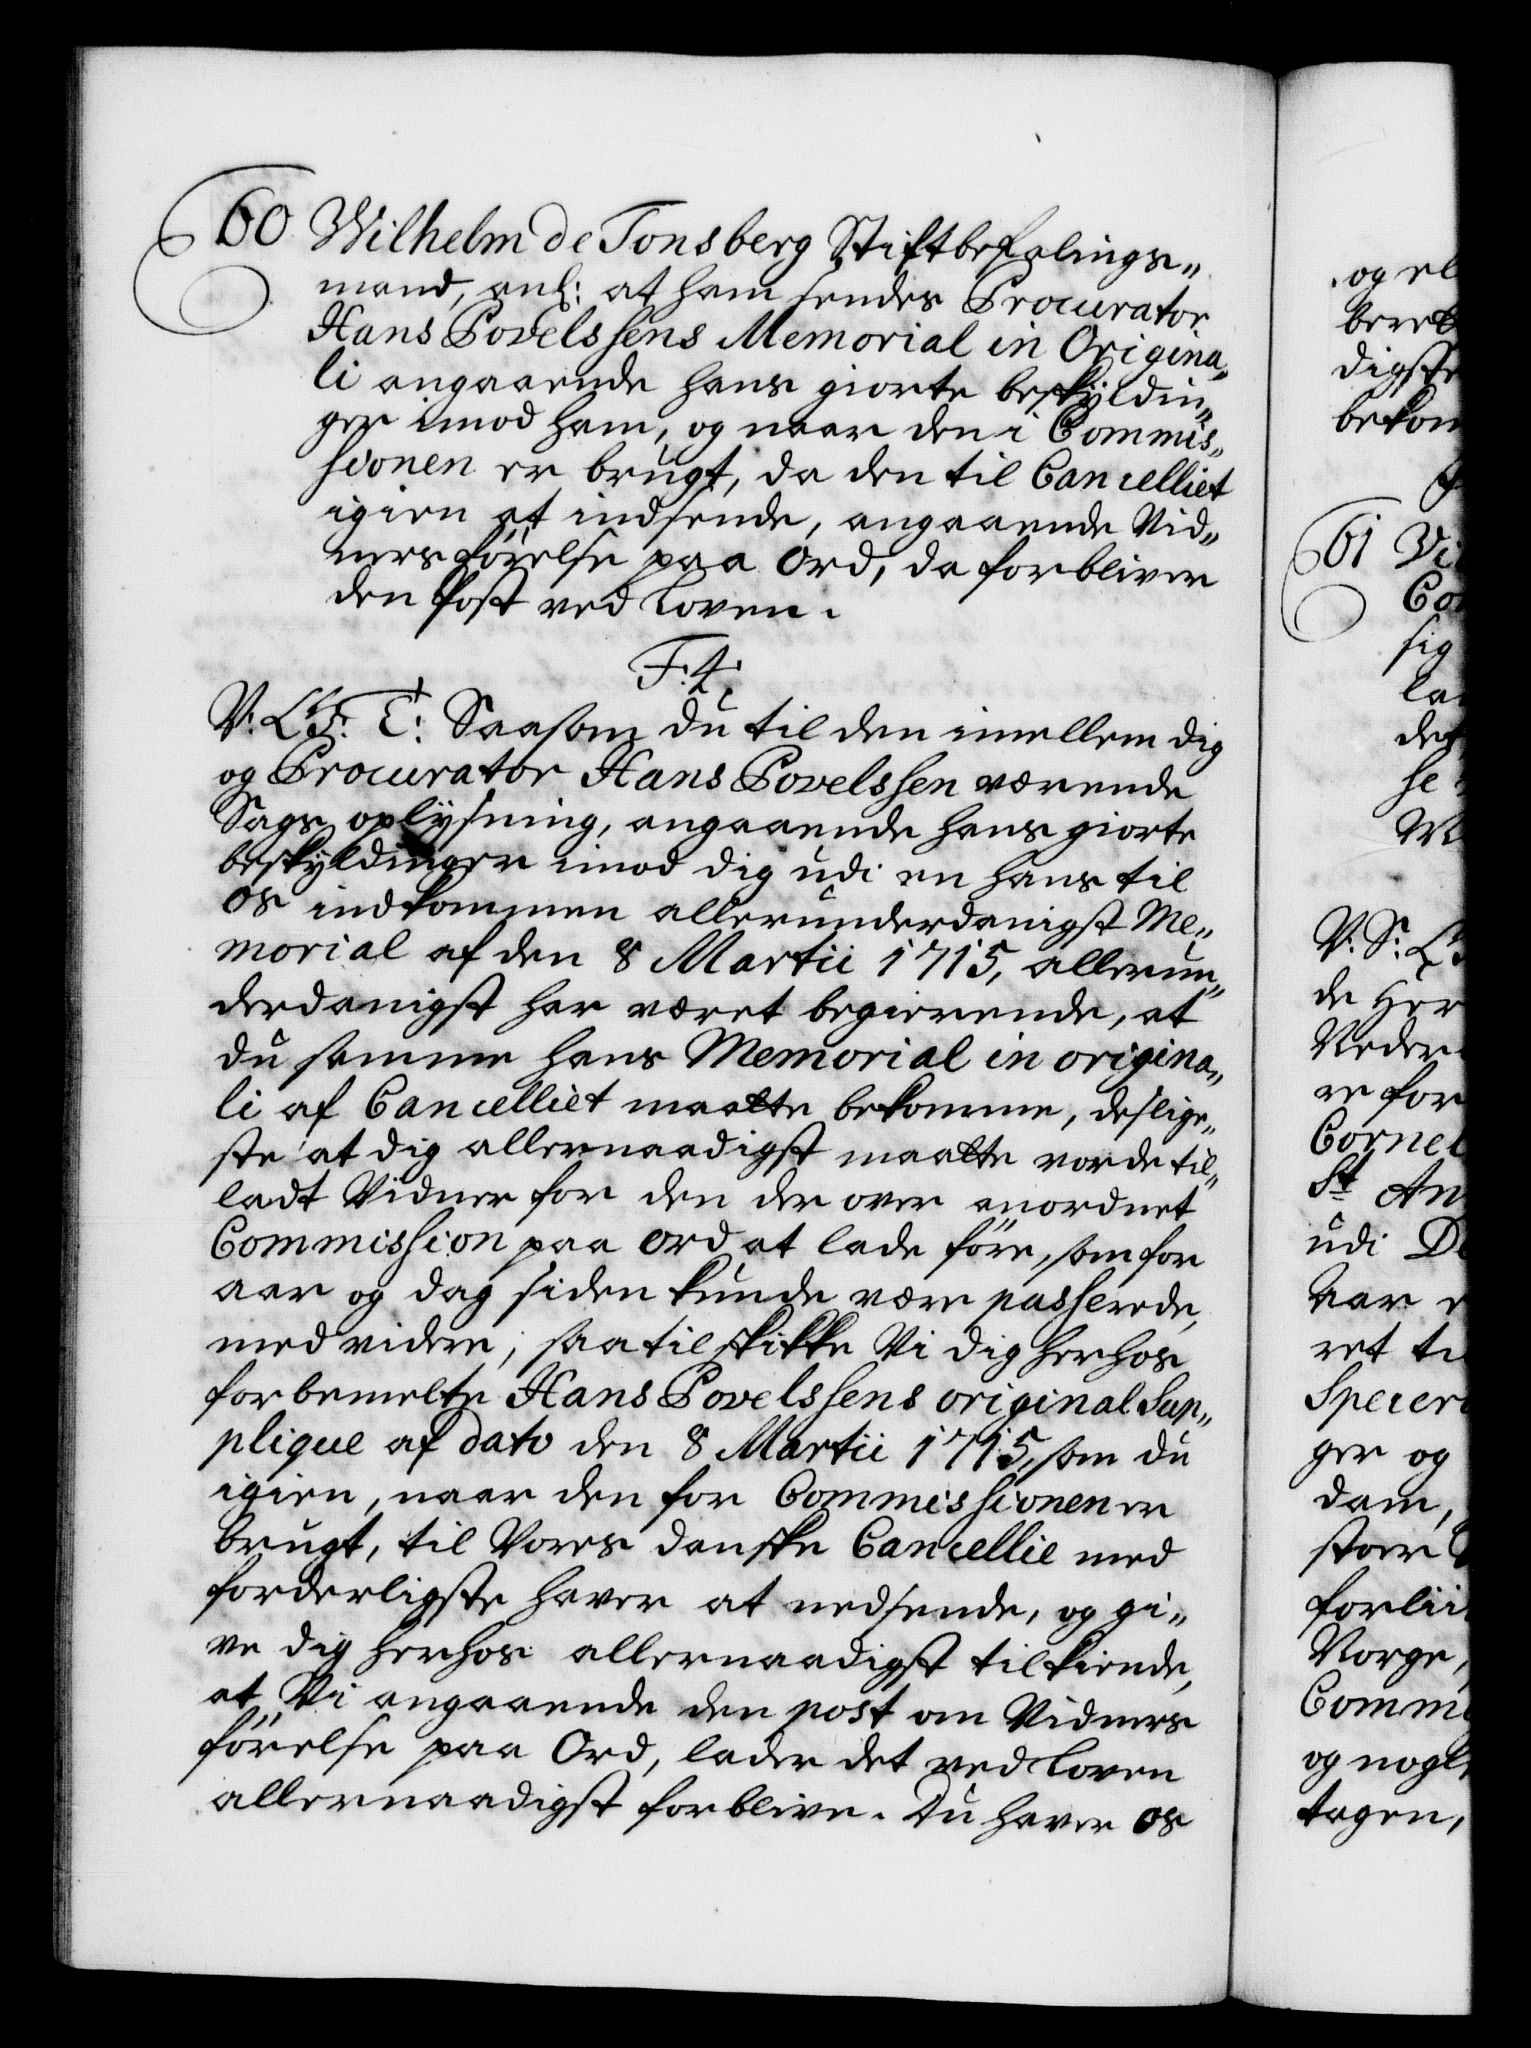 60 Wilhelm de Tonsberg Stiftbefalings„
mand, anl: at ham sendes Procurator
Hans Povelssens Memorial in Origina„
li angaaende hans giorte beskÿldin„
ger imod ham, og naar den i Commis„
sionen er brugt, da den til Cancelliet
igien at indsende, angaaende Vid„
ners förelse paa Ord, da forbliver
den Post ved Loven.
F: 4:
V: G: T: Saasom du til den imellem dig
og Procurator Hans Povelssen værende
Sags oplÿsning, angaaende hans giorte
beskÿldinger imod dig udi en hans til
os indkommen allerunderdanigst Me„
morial af den 8 Martii 1715, allerun„
derdanigst har været begierende, at
du samme hans Memorial in origina„
li af Cancelliet maatte bekomme, deslige„
ste at dig allernaadigst maatte vorde til„
ladt Vidner for den der over anordnet
Commission paa ord at lade före, som for
aar og dag siden kunde være passerede,
med videre; saa tilskikke Vi dig herhos
forbemelte Hans Povelssens original Sup„
plique af dato den 8 Martii 1715, som du
igien, naar den for Commissionen er
brugt, til Vores danske Cancellie med
forderligste haver at nedsende, og gi„
ve dig herhos allernaadigst tilkiende,
at Vi angaaende den post om Vidners
förelse paa Ord, lader det ved Loven
allernaadigst forblive. Du haver os
og el
beret
digste
bekom
61 Vi
Co
sig
la
det
se
V: S:
de Her
Neder
re for
Cornel
St An
udi D
Aar
ret ti
Specere
ger og
dam,
stoer
forlii
Norge,
Comm
og nogl
tagen,